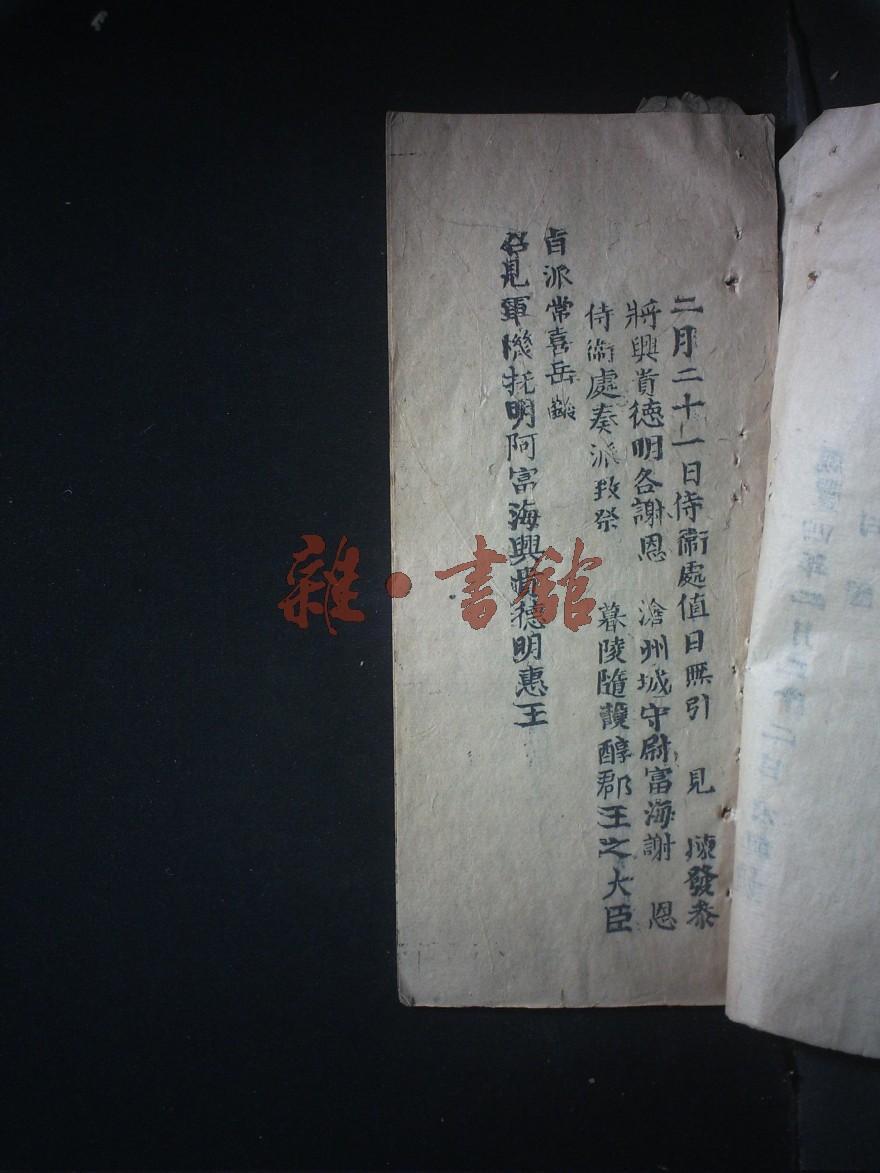 二月二十一日侍衛處值日無引　見　發泰
將興貴德明各謝恩　滄州城守尉富海謝　恩
侍衛處奏派致祭　慕陵隨醇郡王之大臣
旨派常喜岳
召見軍機托明阿富海興貴德明惠王
雜·書館